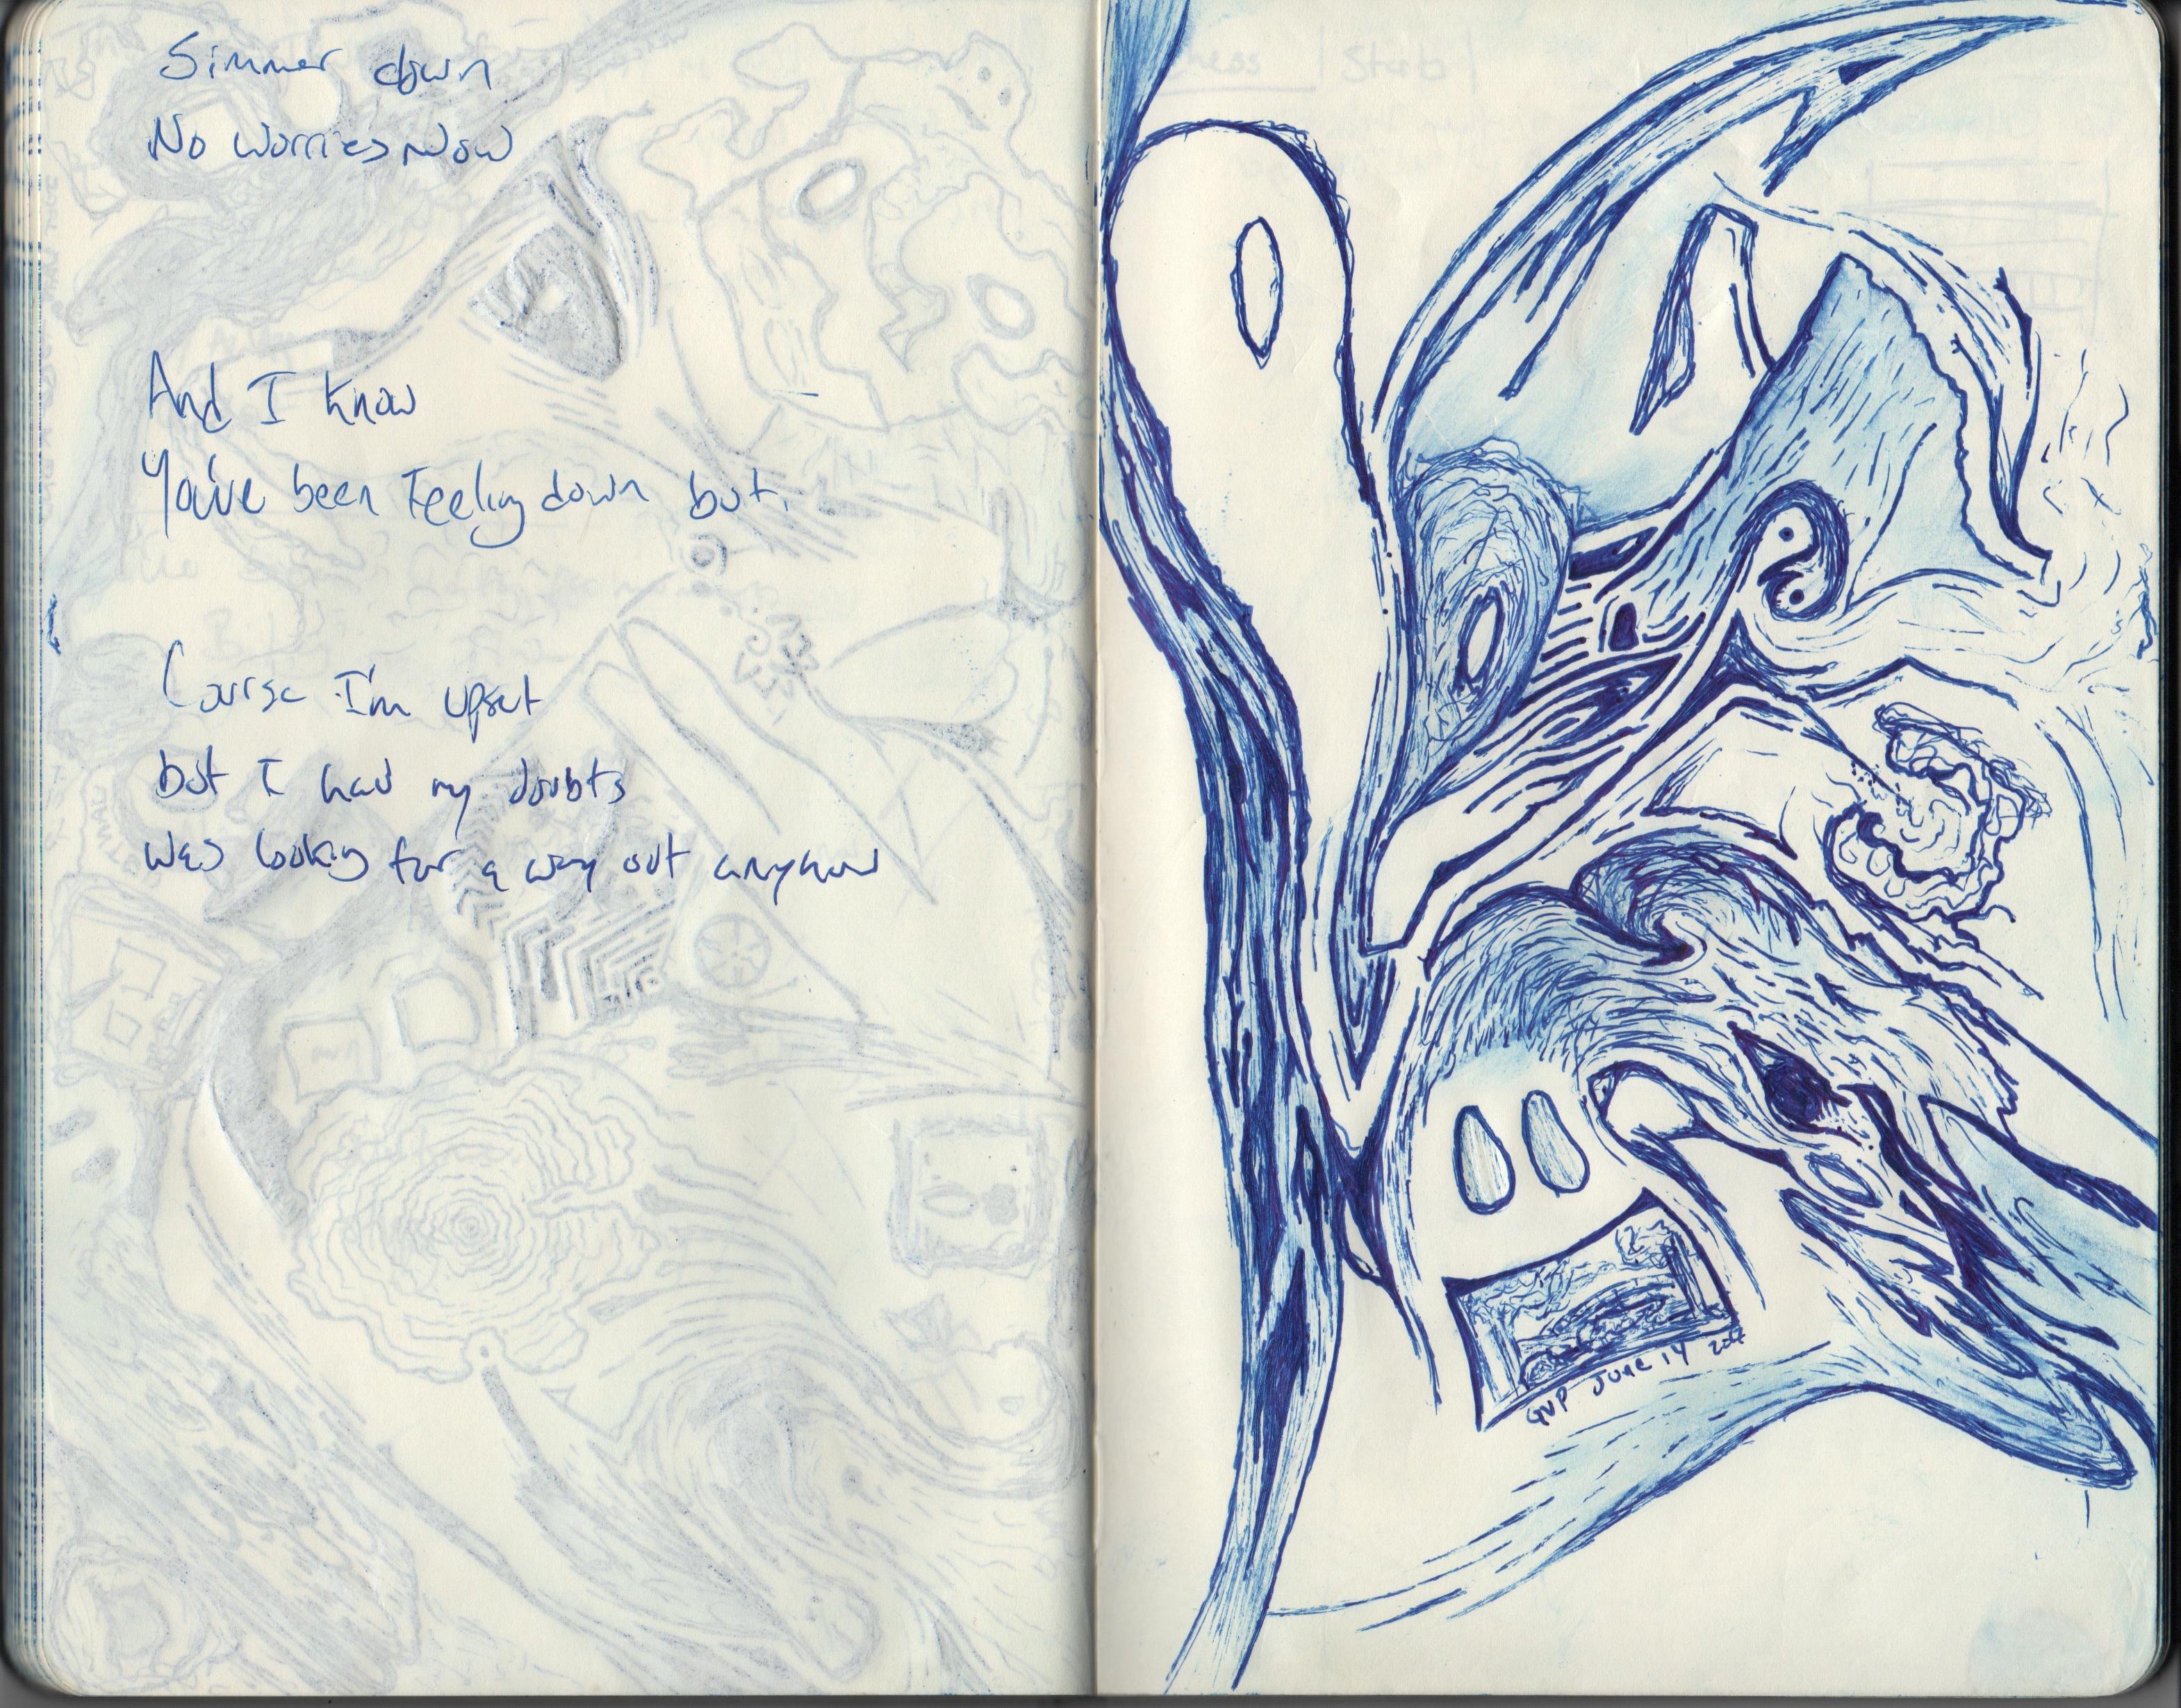 Simmer down
No Worries Now
And I know
You've been Feeling down but.
Course I'm upset
but I had my doubts
was looking for a way out anyhow
ness | Starb |
GVP June 14